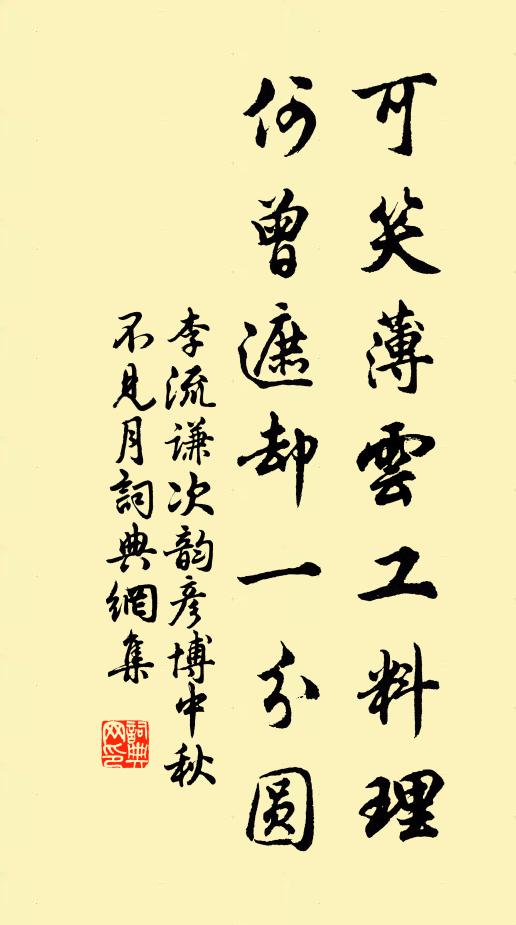 可笑薄雲工料理
何曾遮却一分圓
李流謙次韵彥博中秋
不見月詞典網集
詞典
网印